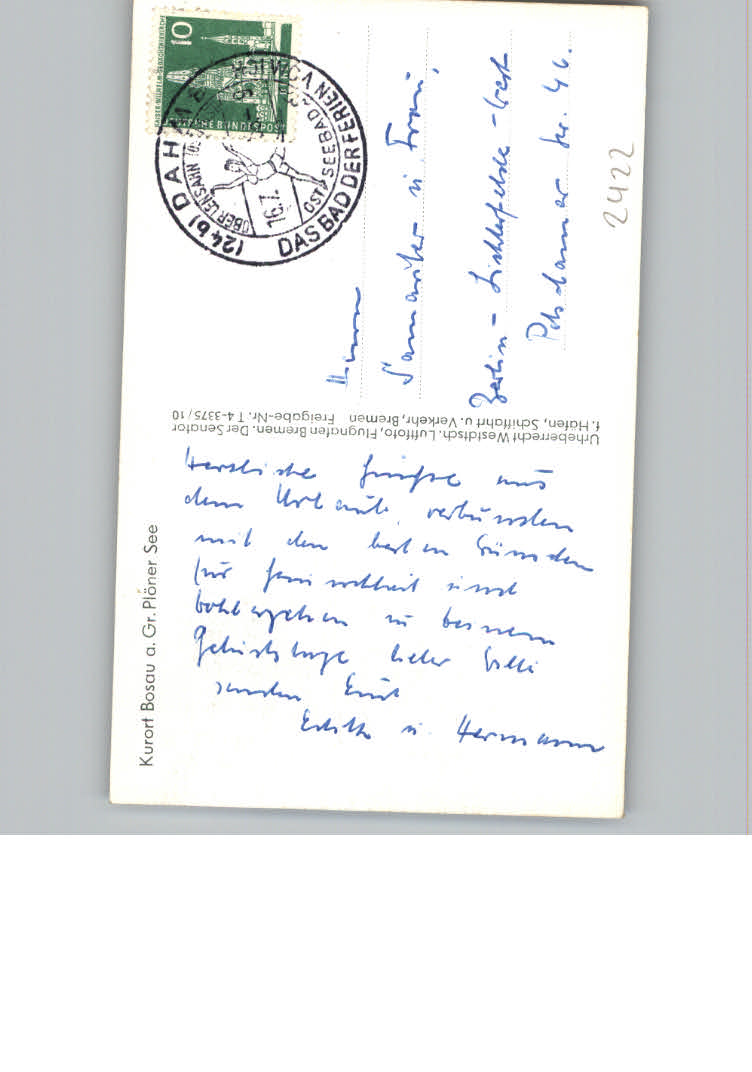 Kurort Bosau a. Gr. Plöner See
Herzliche Grüße aus
dem Urlaub, verbunden
mit den besten Wünschen
für Gesundheit und
Wohlergehen zu Deinem
Geburtstage lieber Willi
senden Euch
Edith u. Hermann
Urheberrecht Westdtsch. Luftfoto, Flughafen Bremen. Der Senator
f. Häfen, Schiffahrt u. Verkehr, Bremen Freigabe-Nr. T 4-3375/10
Herrn
Samariter u. Frau,
Berlin - Lichterfelde - West
Potsdamer Str. 46.
2422
10
KAISER-WILHELM-GEDÄCHTNISKIRCHE
DEUTSCHE BUNDESPOST
(24b) DAHME
ÜBER LENSAHN
16.7.
OSTSEEBAD
DAS BAD DER FERIEN